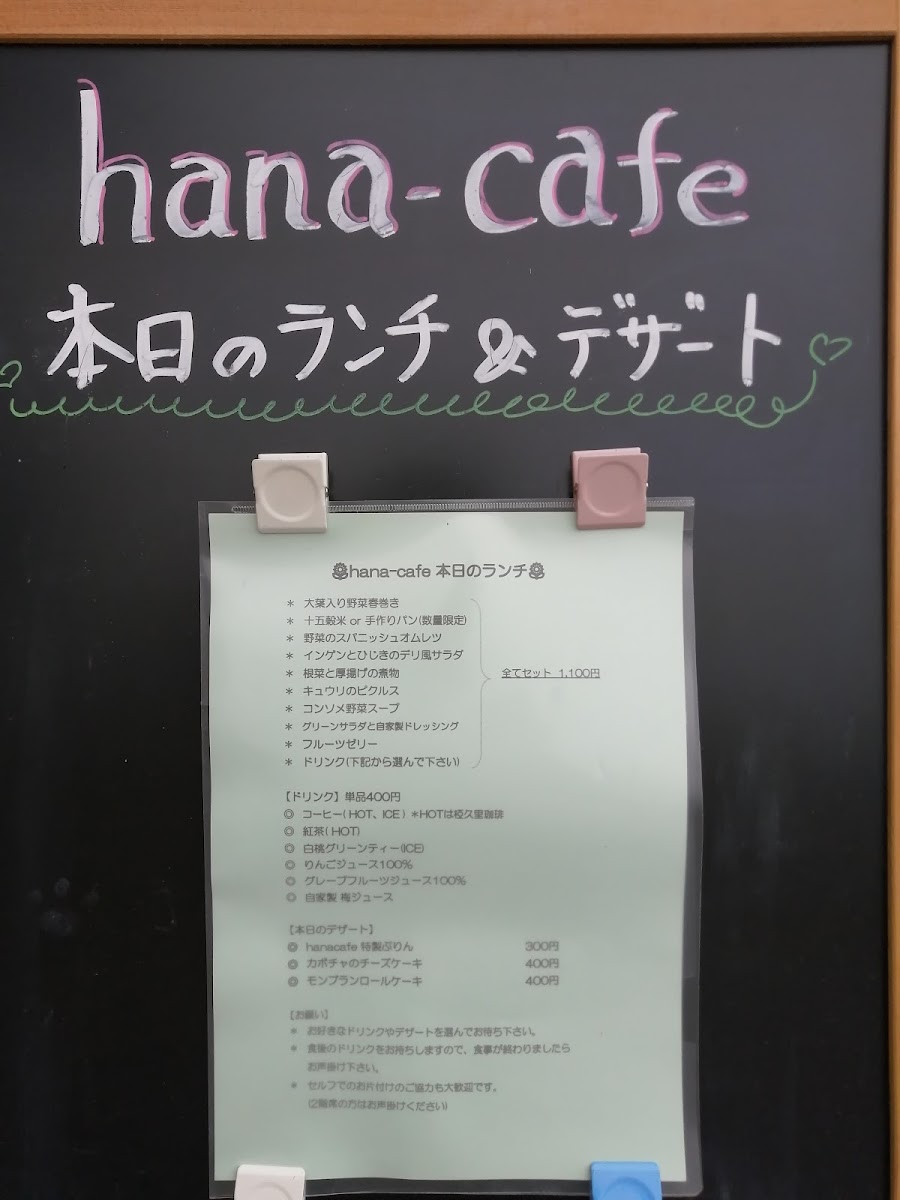 hana-cafe
本日のランチ & デザート
hana-cafe 本日のランチ
＊ 大葉入り野菜春巻き
＊ 十五穀米 or 手作りパン(数量限定)
＊ 野菜のスパニッシュオムレツ
＊ インゲンとひじきのデリ風サラダ
＊ 根菜と厚揚げの煮物
全てセット 1,100円
＊ キュウリのピクルス
＊ コンソメ野菜スープ
＊ グリーンサラダと自家製ドレッシング
＊ フルーツゼリー
＊ ドリンク(下記から選んで下さい)
【ドリンク】単品400円
◎ コーヒー(HOT、ICE) ＊HOTは椏久里珈琲
◎ 紅茶(HOT)
◎ 白桃グリーンティー(ICE)
◎ りんごジュース100%
◎ グレープフルーツジュース100%
◎ 自家製 梅ジュース
【本日のデザート】
◎ hanacafe 特製ぷりん 300円
◎ カボチャのチーズケーキ 400円
◎ モンブランロールケーキ 400円
【お願い】
＊ お好きなドリンクやデザートを選んでお待ち下さい。
＊ 食後のドリンクをお持ちしますので、食事が終わりましたら
お声掛け下さい。
＊ セルフでのお片付けのご協力も大歓迎です。
(2階席の方はお声掛けください)